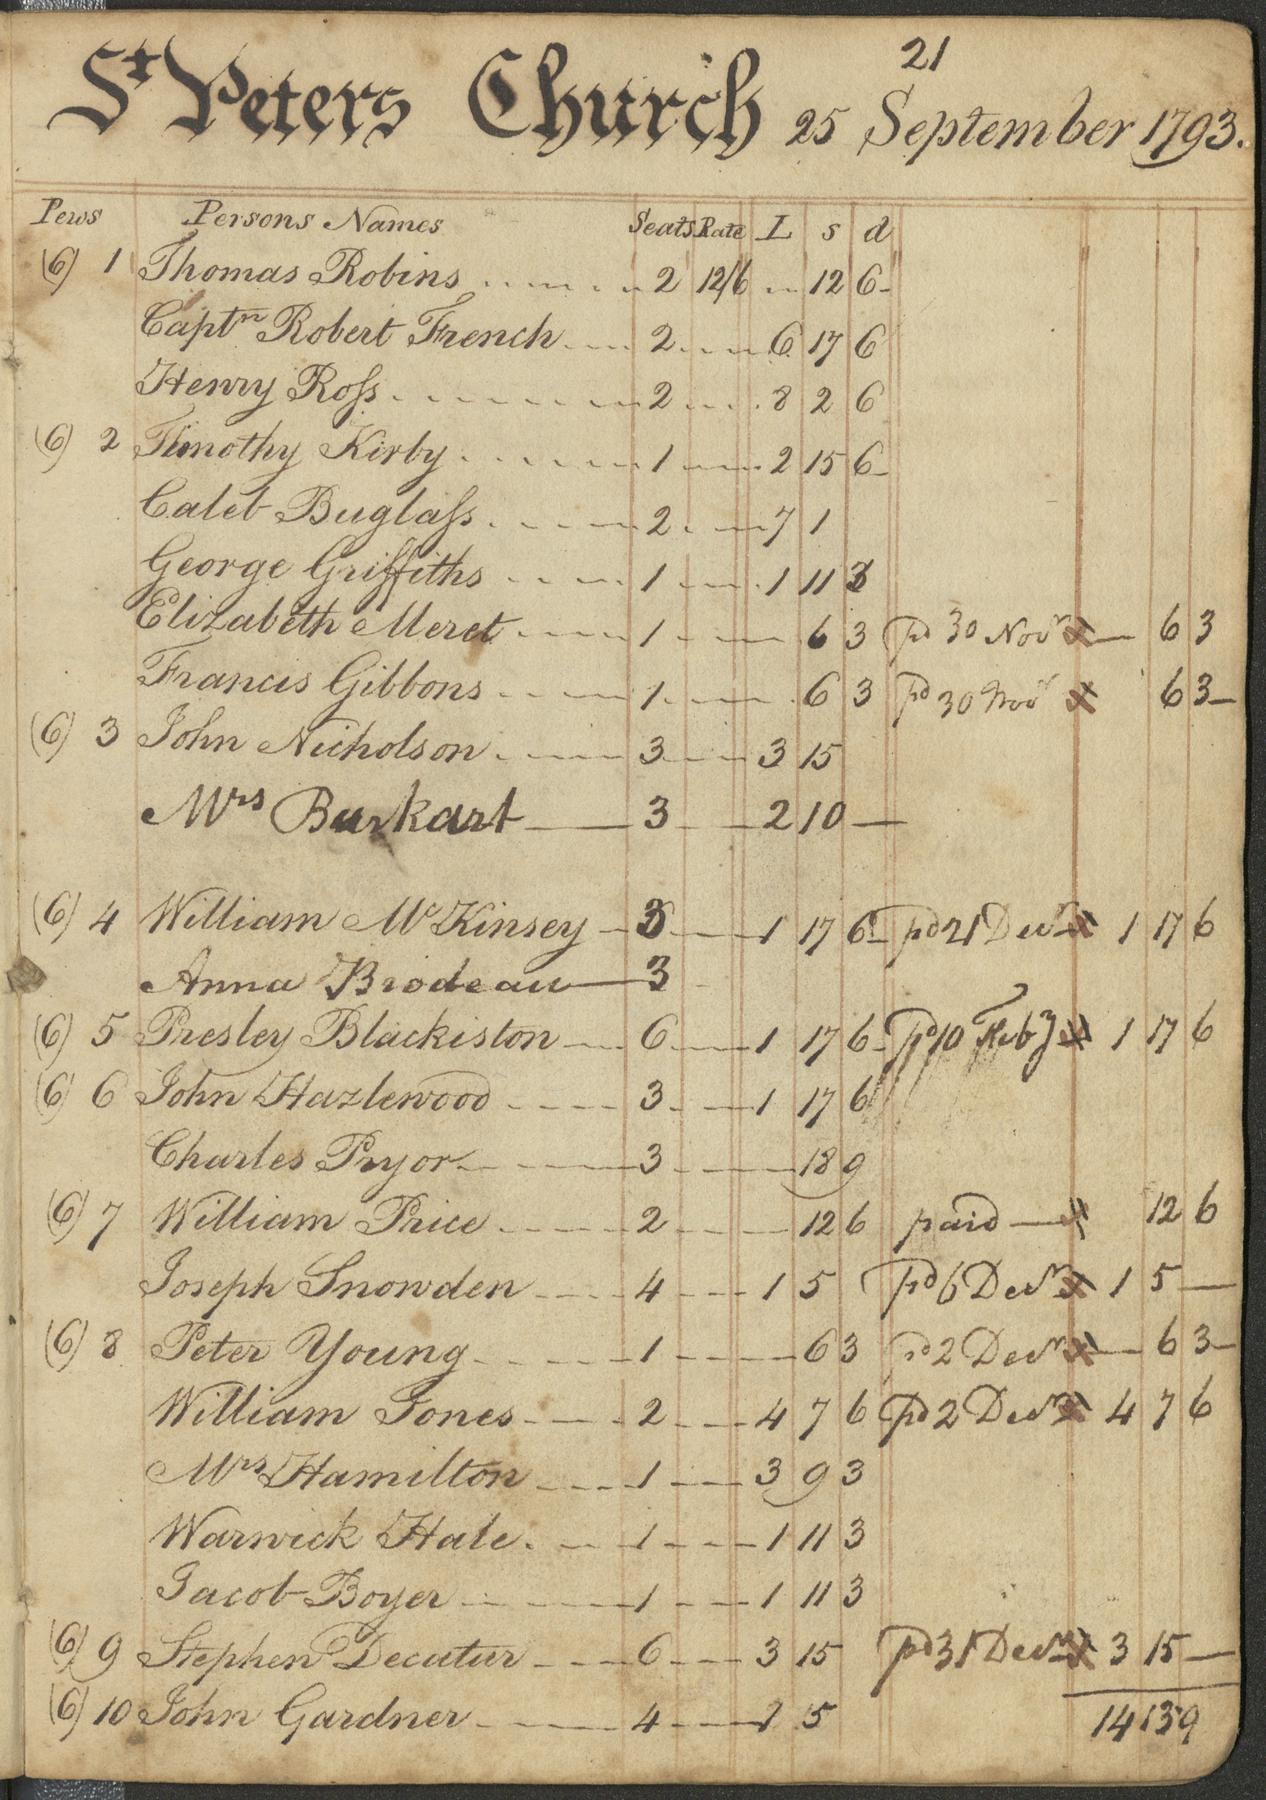 21
St Peters Church 25 September 1793.
Pews Persons Names Seats Rate L s d
(6) 1 Thomas Robins 2 12/6 12 6
Captn Robert French 2 6 17 6
Henry Ross 2 8 2 6
(6) 2 Timothy Kirby 1 2 15 6
Caleb Buglass 2 7 1
George Griffiths 1 1 11 3
Elizabeth Meret 1 6 3 pd 30 Novr 6 3
Francis Gibbons 1 6 3 pd 30 Novr 6 3
(6) 3 John Nicholson 3 3 15
Mrs Burkart 3 2 10
(6) 4 William McKinsey 3 1 17 6 pd 21 Decr 1 17 6
Anna Brodeau 3
(6) 5 Presley Blackiston 6 1 17 6 pd 10 Feby 1 17 6
(6) 6 John Hazlewood 3 1 17 6
Charles Pryor 3 18 9
(6) 7 William Price 2 12 6 paid 12 6
Joseph Snowden 4 1 5 pd 6 Decr 1 5
(6) 8 Peter Young 1 6 3 pd 2 Decr 6 3
William Jones 2 4 7 6 pd 2 Decr 4 7 6
Mrs Hamilton 1 3 9 3
Warwick Hale 1 1 11 3
Jacob Boyer 1 1 11 3
(6) 9 Stephen Decatur 6 3 15 pd 31 Decr 3 15
(6) 10 John Gardner 4 1 5
14 13 9